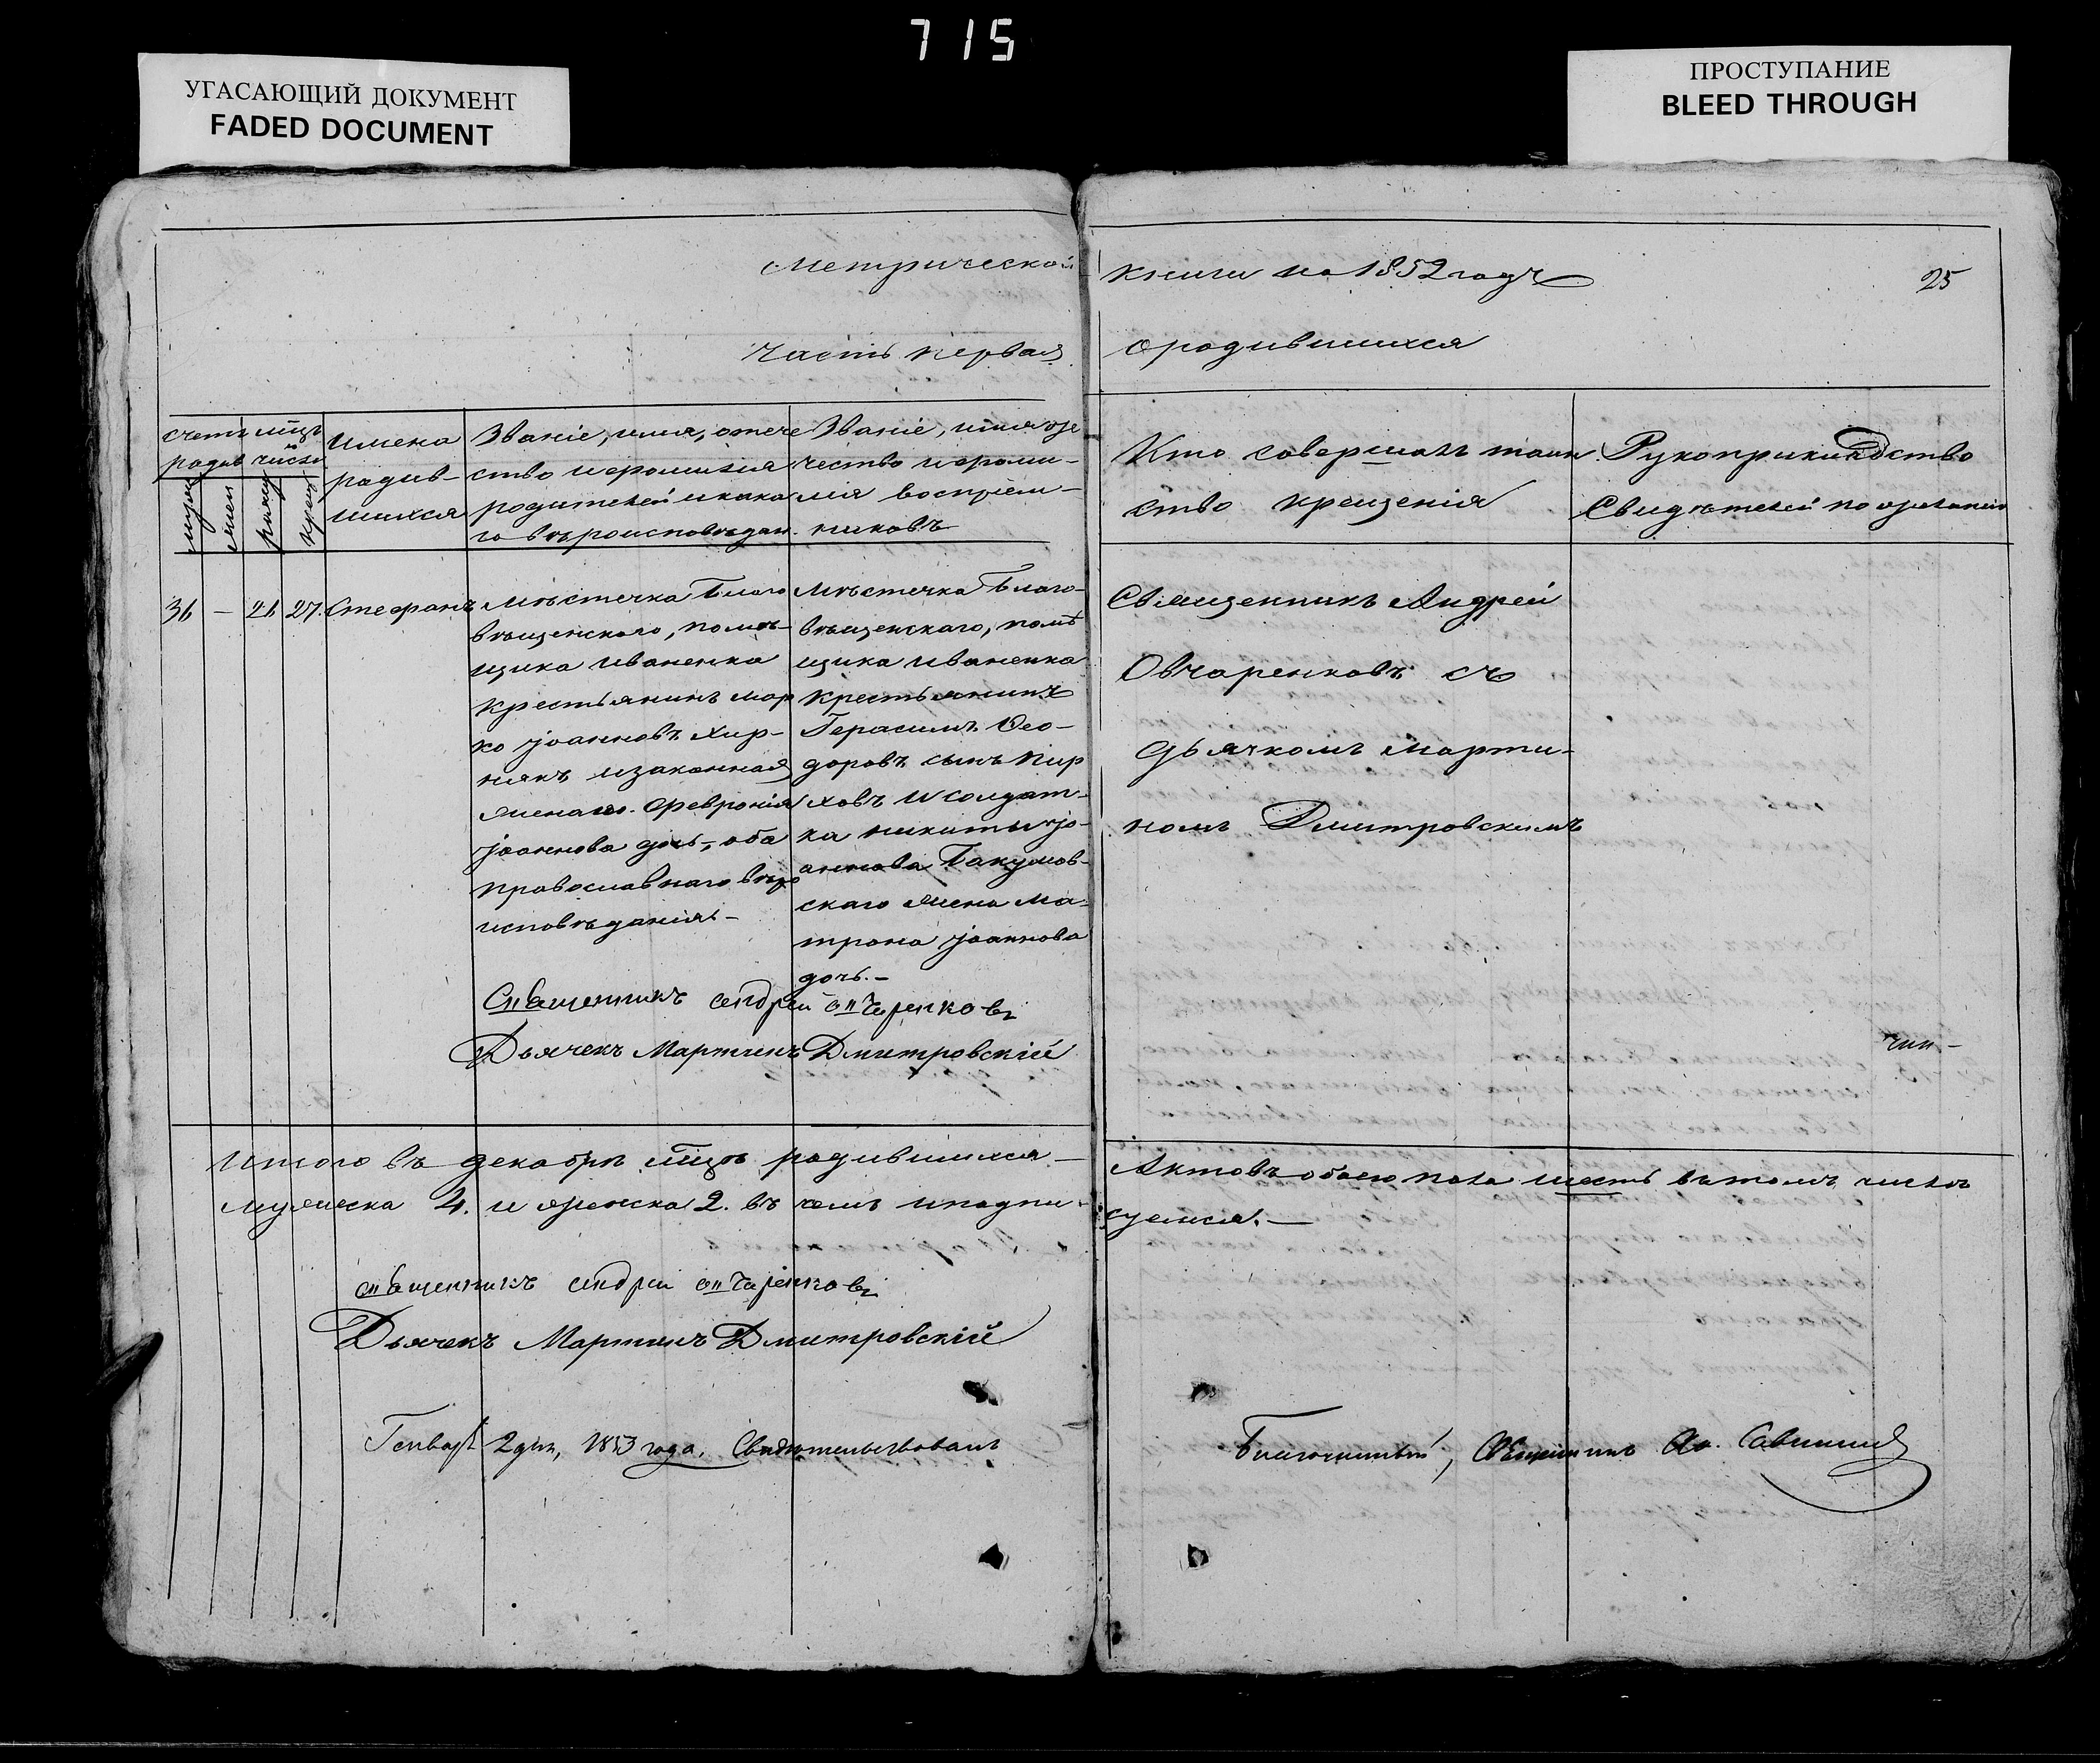 715
УГАСАЮЩИЙ ДОКУМЕНТ
FADED DOCUMENT
ПРОСТУПАНИЕ
BLEED THROUGH
Метрической книги на 1852 годъ
25
Часть первая о родившихся
счетъ
родив
числа
Имена
родив-
шихся
Званіе, имя, отече
ство и фамилія
родителей и кака
го вѣроисповѣдан.
Званіе, имя оте
чество и фами-
лія воспріем-
никовъ
Кто совершалъ таин
ство крещенія
Рукоприкладство
Свидѣтелей по желанію
36 — 26 27. Стефанъ
Мѣстечка Благо
вѣщенского, помѣ-
щика Иваненка
крестьянинъ Мар
ко Іоанновъ Хир-
някъ и законная
жена его Февронія
Іоаннова дочь, оба
православнаго вѣро
исповѣданія. —
Мѣстечка Благо-
вѣщенскаго, помѣ
щика Иваненка
крестьянинъ
Герасимъ Ѳео-
доровъ сынъ Кир
ховъ и солдат-
ка Никиты Іо-
аннова Бакумов-
скаго жена Ма-
трона Іоаннова
дочь. —
Священникъ Андрей
Овчаренковъ съ
дьячкомъ Марти-
номъ Дмитровскимъ
Священникъ Андрей Овчаренковъ
Дьячекъ Мартинъ Дмитровскій
чин —
Итого въ декабрѣ родившихся —
мужеска 4. и женска 2. въ чемъ и подпи-
Актовъ обоего пола шесть въ томъ числѣ
суемся. —
Священникъ Андрей Овчаренковъ
Дьячекъ Мартинъ Дмитровскій
Генваря 2 дня, 1853 года. Свидѣтельствовалъ
Благочинный, Священникъ